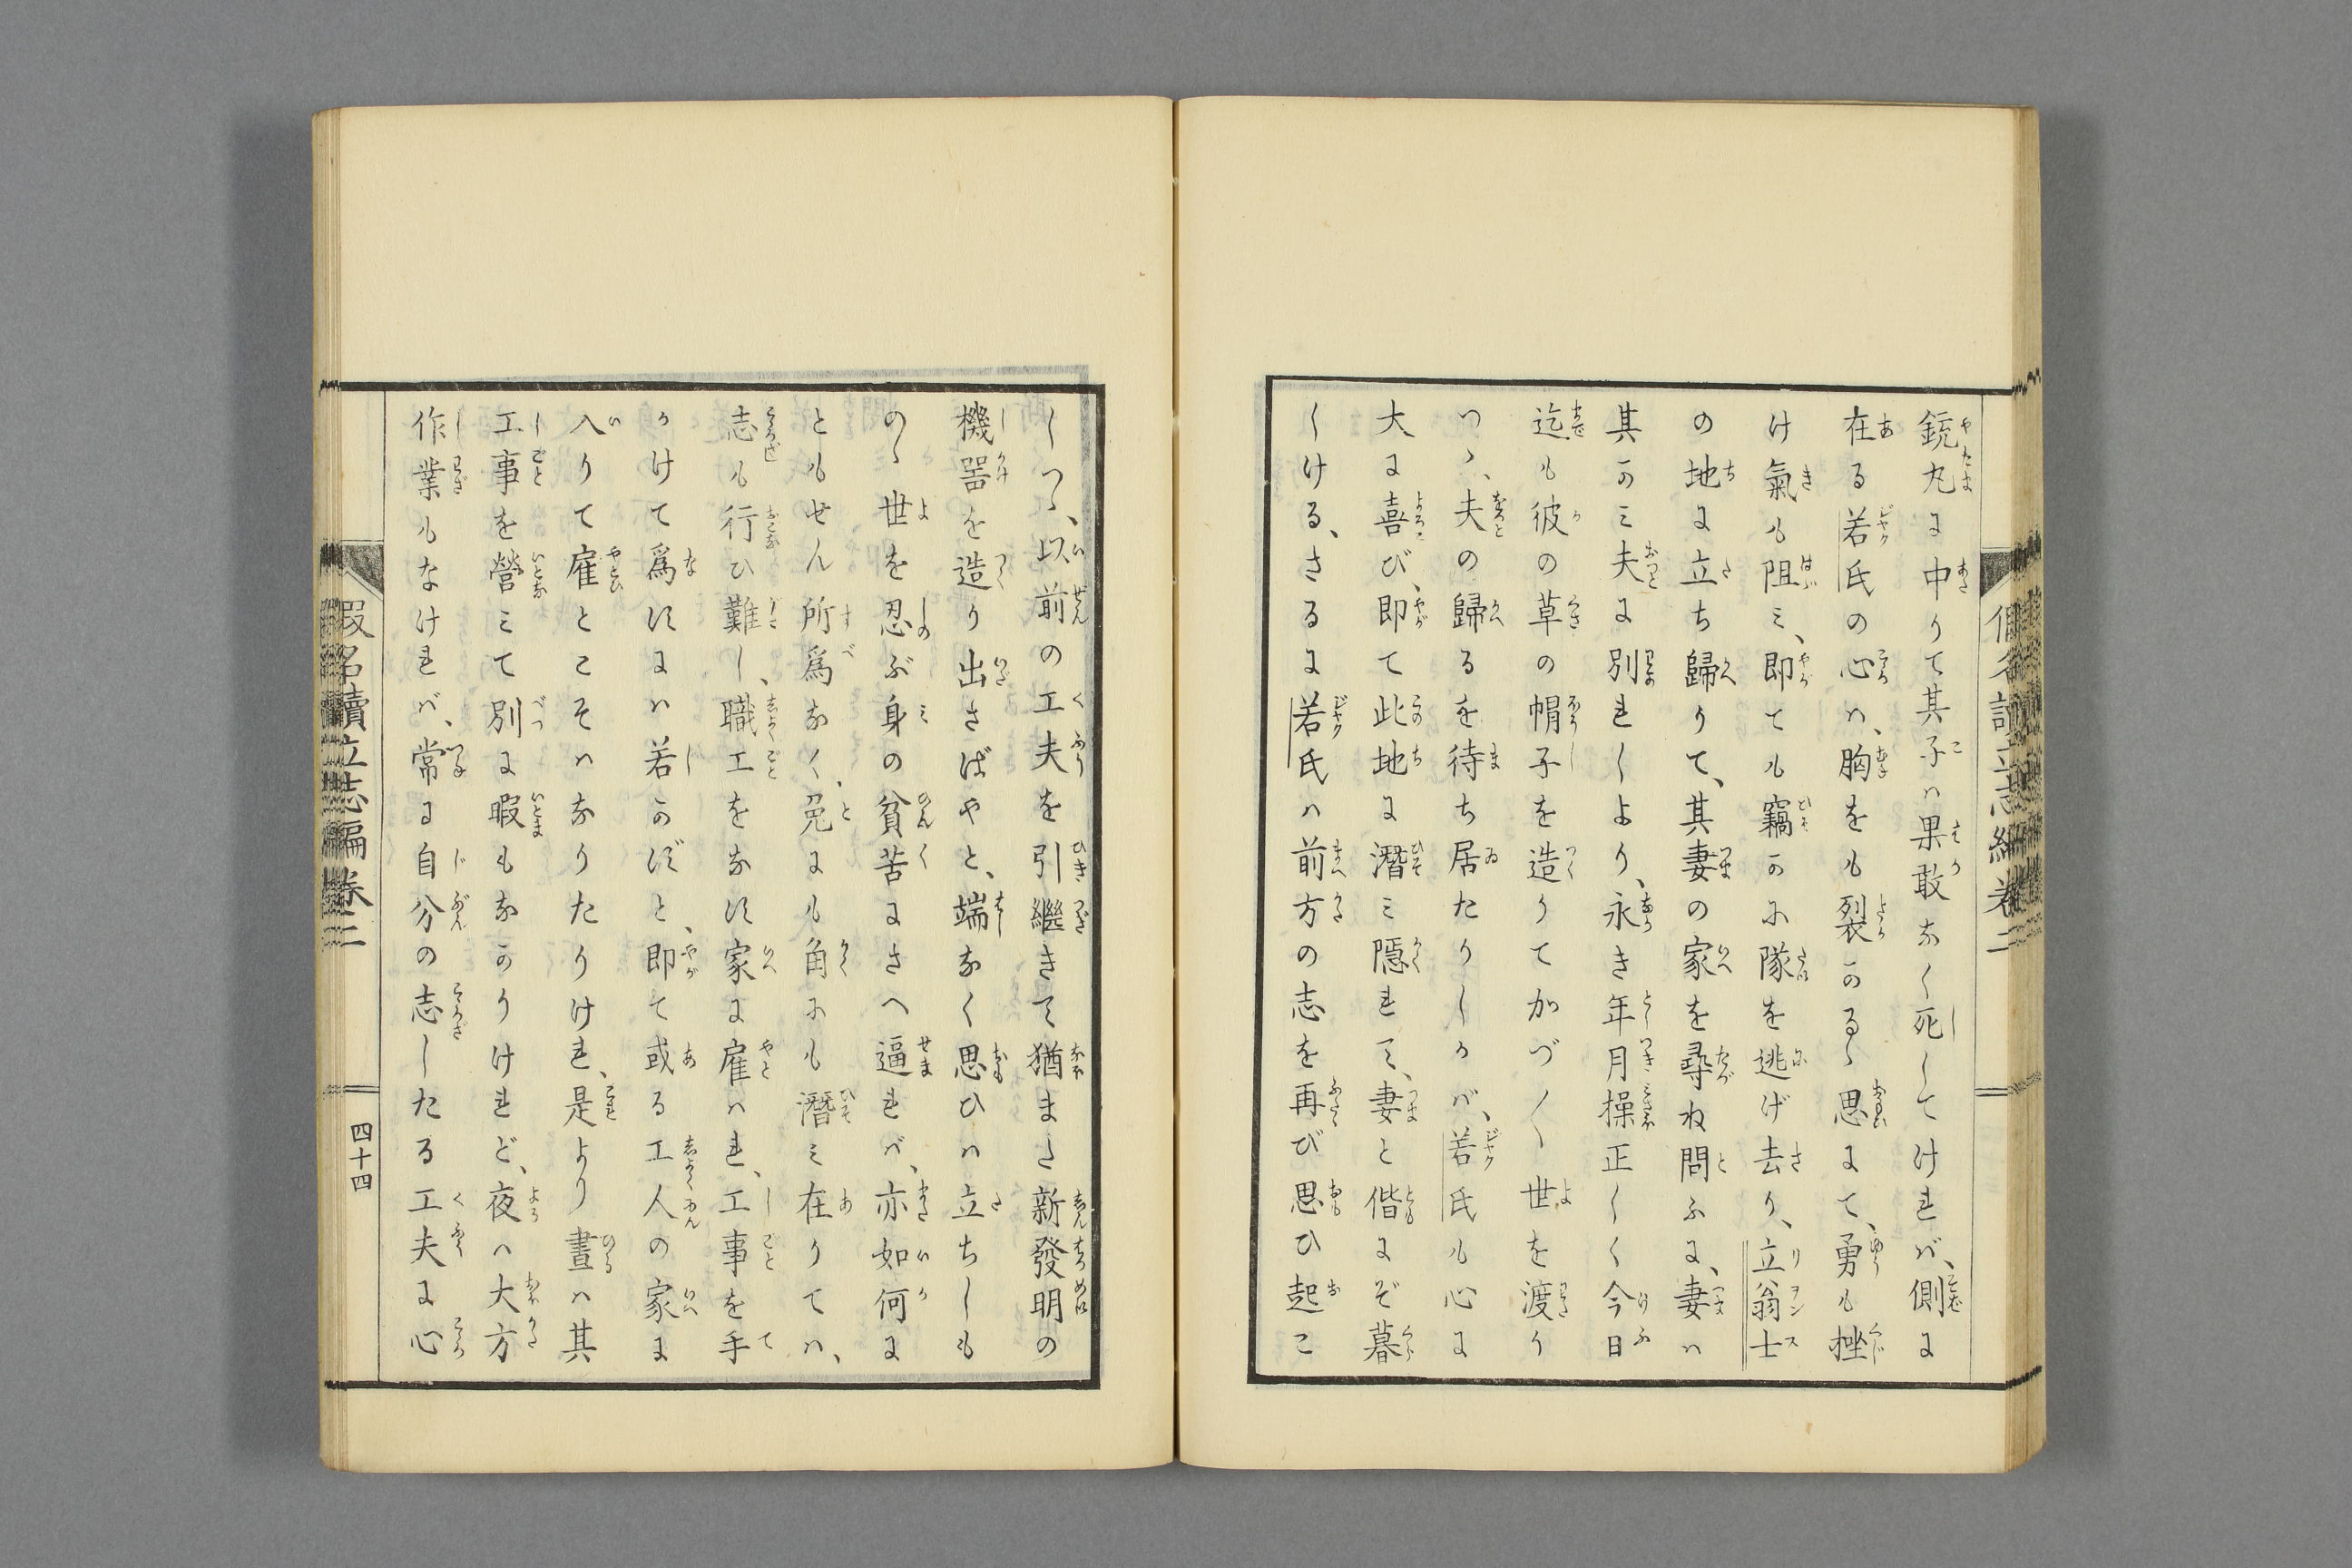 銃丸に中りて其子ハ果敢なく死してけれバ、側に
在る若氏の心ハ、胸をも裂かるゝ思にて、勇も挫
け氣も阻ミ、即ても竊かに隊を逃げ去り、立翁士
の地に立ち歸りて、其妻の家を尋ね問ふに、妻ハ
其かミ夫に別れしより、永き年月操正しく今日
迄も彼の草の帽子を造りて加づ〱世を渡り
つゝ、夫の歸るを待ち居たりしかバ、若氏も心に
大に喜び、即て此地に潛ミ隱れて、妻と偕にぞ暮
しける、さるに若氏ハ前方の志を再び思ひ起こ
しつゝ、以前の工夫を引繼きて猶また新發明の
機器を造り出さばやと、端なく思ひハ立ちしも
のゝ世を忍ぶ身の貧苦にさへ逼れバ、亦如何に
ともせん所爲なく、兔にも角にも潛ミ在りてハ、
志も行ひ難し、職工をなす家に雇ハれ、工事を手
かけて爲すにハ若かずと、即て或る工人の家に
入りて雇とこそハなりたりけれ、是より晝ハ其
工事を營ミて別に暇もなかりけれど、夜ハ大方
作業もなけれバ、常に自分の志したる工夫に心
假名讀立志編 卷二
四十四